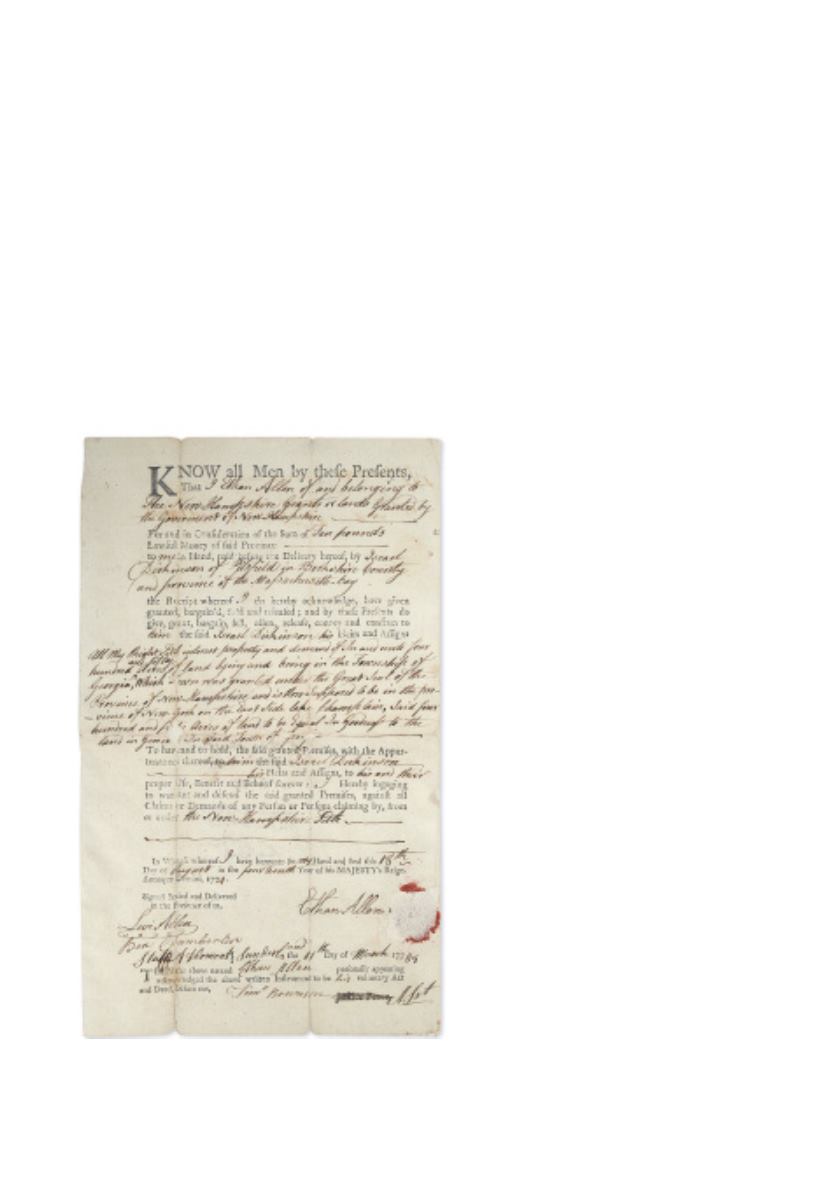 KNOW all Men by theſe Preſents,
That I Ethan Allen of and belonging to
The New Hampshire Grants or lands Granted by
the Goverment of New Hampshire
For and in Conſideration of the Sum of Ten pounds
Lawful Money of ſaid Province
to me in Hand, paid before the Delivery hereof, by Israel
Dickinson of Pitsfield in Berkshire County
and province of the Massachusetts bay
the Receipt whereof I do hereby acknowledge, have given
granted, bargain'd, ſold and releaſed; and by theſe Preſents do
give, grant, bargain, ſell, alien, releaſe, convey and confirm to
him the ſaid Israel Dickinson his Heirs and Aſſigns
All My Right Title interest property and demand of In and unto four
hundred and fifty Acres of land lying and being in the Township of
Georgia, Which was granted under the Great Seal of the
Province of New Hampshire and is Now Supposed to be in the pro-
vince of New York on the East Side lake Champlain, Said four
hundred and Acres of land to be Equal In Goodness to the
land in Said Town of
To have and to hold, the ſaid granted Premiſes, with the Appur-
tenances thereof, to him the ſaid Israel Dickinson
his Heirs and Aſſigns, to his and their
proper Uſe, Benefit and Behoof forever I Hereby Ingaging
to warrant and defend the ſaid granted Premiſes, againſt all
Claims or Demands of any Perſon or Perſons claiming by, from
or under the New Hampshire Title
In Witneſs whereof, I have hereunto ſet my Hand and Seal this 18th
Day of August in the fourteenth Year of his MAJESTY's Reign
1774.
Signed Sealed and Delivered
in the Preſence of us,
Ethan Allen
Levi Allen
State of Vermont Sunderland the 11th Day of March 177
the above named Ethan Allen perſonally appearing
acknowledged the above written Inſtrument to be his voluntary Act
and Deed, before me, Timo Brownson Asst